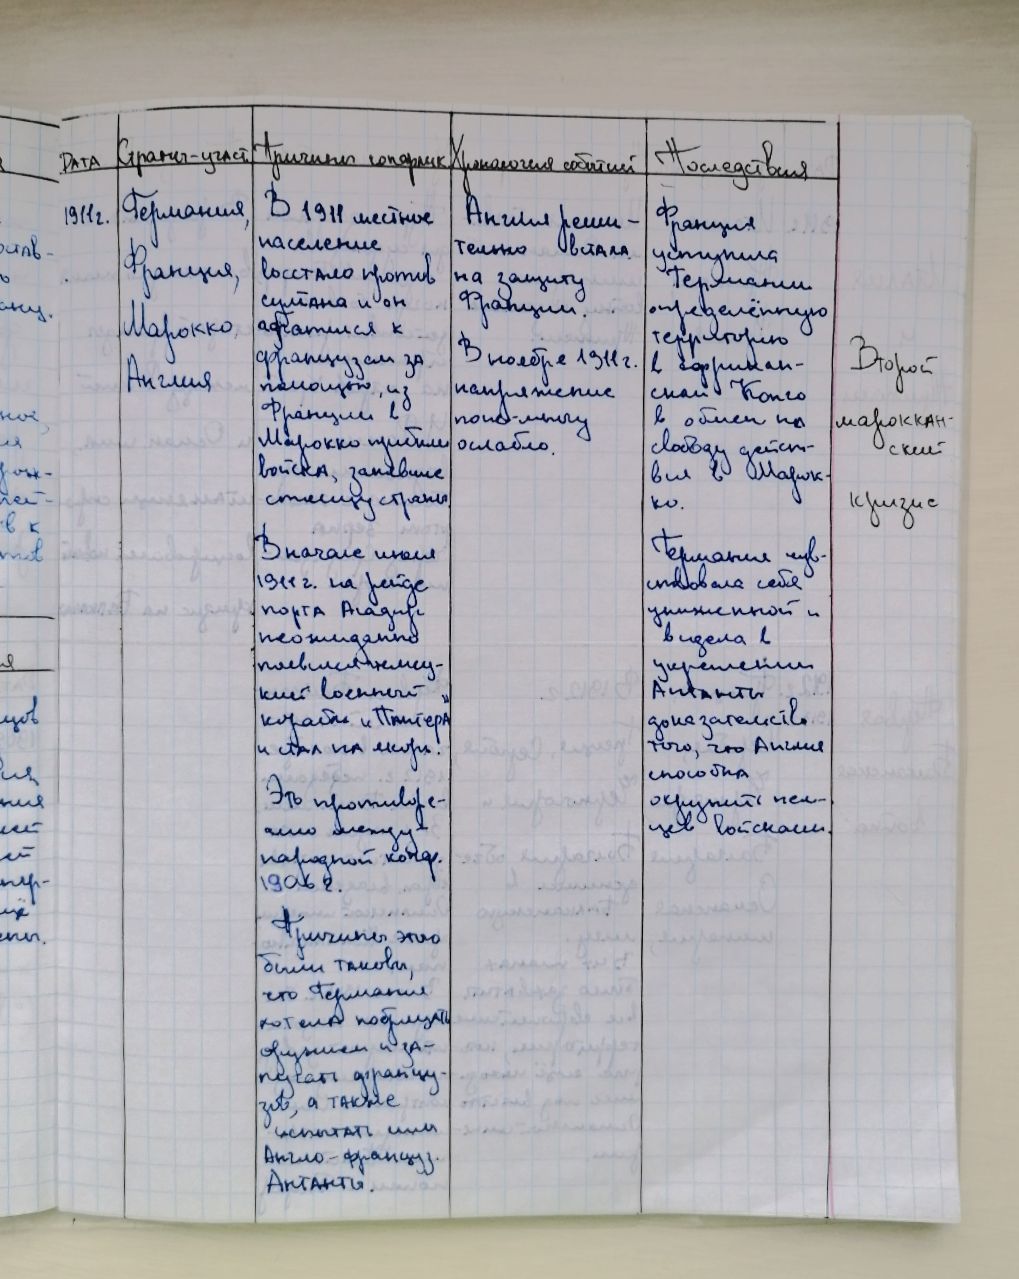 Дата
Страны-участ.
Причины конфлик.
Хронология событий
Последствия
1911г.
Германия,
Франция,
Марокко,
Англия
В 1911 местное
население
восстало против
султана и он
обратился к
французам за
помощью, из
Франции в
Марокко прибыли
войска, занявшие
столицу страны.
В начале июля
1911г. на рейде
порта Агадир
неожиданно
появился немец-
кий военный
корабль "Пантера"
и стал на якорь.
Это противоре-
чило между-
народной конф.
1906 г.
Причины этого
были таковы,
что Германия
хотела побряцать
оружием и за-
пугать францу-
зов, а также
испытать силы
Англо-француз.
Антанты.
Англия реши-
тельно встала
на защиту
Франции.
В ноябре 1911г.
напряжение
понемногу
ослабло.
Франция
уступила
Германии
определённую
территорию
в африкан-
ском Конго
в обмен на
свободу дейст-
вия в Марок-
ко.
Германия чув-
ствовала себя
униженной и
видела в
укреплении
Антанты
доказательство
того, что Англия
способна
окружить нем-
цев войсками.
Второй
мароккан-
ский
кризис